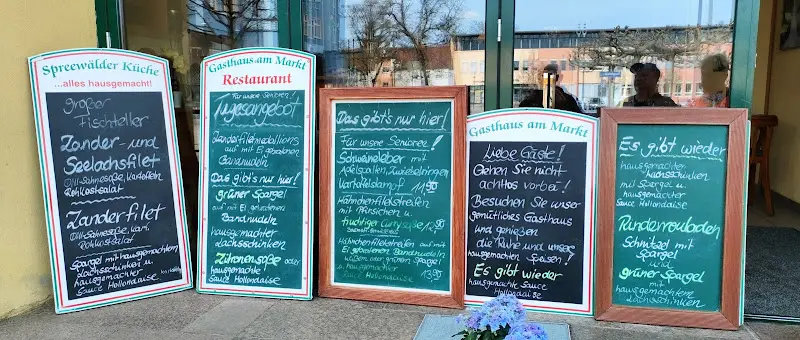 Spreewälder Küche
...alles hausgemacht!
großer
Fischteller
Zander- und
Seelachsfilet
Dill-Sahnesoße, Kartoffeln
Rohkostsalat
Zanderfilet
Dill-Sahnesoße, Kart.
Rohkostsalat
Spargel mit hausgemachtem
Lachsschinken u.
hausgemachter
Sauce Hollondaise
Gasthaus am Markt
Restaurant
Für unsere Senioren!
Tagesangebot
Zanderfiletmedallions
auf mit Ei gebratenen
Bandnudeln
Das gibt's nur hier!
grüner Spargel
auf mit Ei gebratenen
Bandnudeln
hausgemachter
Lachsschinken
Zitronensoße oder
hausgemachte
Sauce Hollondaise
Das gibt's nur hier!
Für unsere Senioren!
Schweineleber mit
Apfelspalten, Zwiebelringen
Kartoffelstampf 11,90
Hähnchenfiletstreifen
mit Pfirsichen u.
fruchtiger Currysoße 12,90
Hähnchenfiletstreifen auf mit
Ei gebratenen Bandnudeln
weißem oder grünem Spargel
u. hausgemachter
Sauce Hollondaise 13,90
Gasthaus am Markt
Liebe Gäste!
Gehen Sie nicht
achtlos vorbei!
Besuchen Sie unser
gemütliches Gasthaus
und genießen
die Ruhe und unsere
hausgemachten Speisen!
Es gibt wieder
hausgemachte Sauce
Hollondaise
Es gibt wieder
hausgemachter
Lachsschinken
mit Spargel u.
hausgemachter
Sauce Hollondaise
Rinderrouladen
Schnitzel mit
Spargel
und
grüner Spargel
mit
hausgemachtem
Lachsschinken